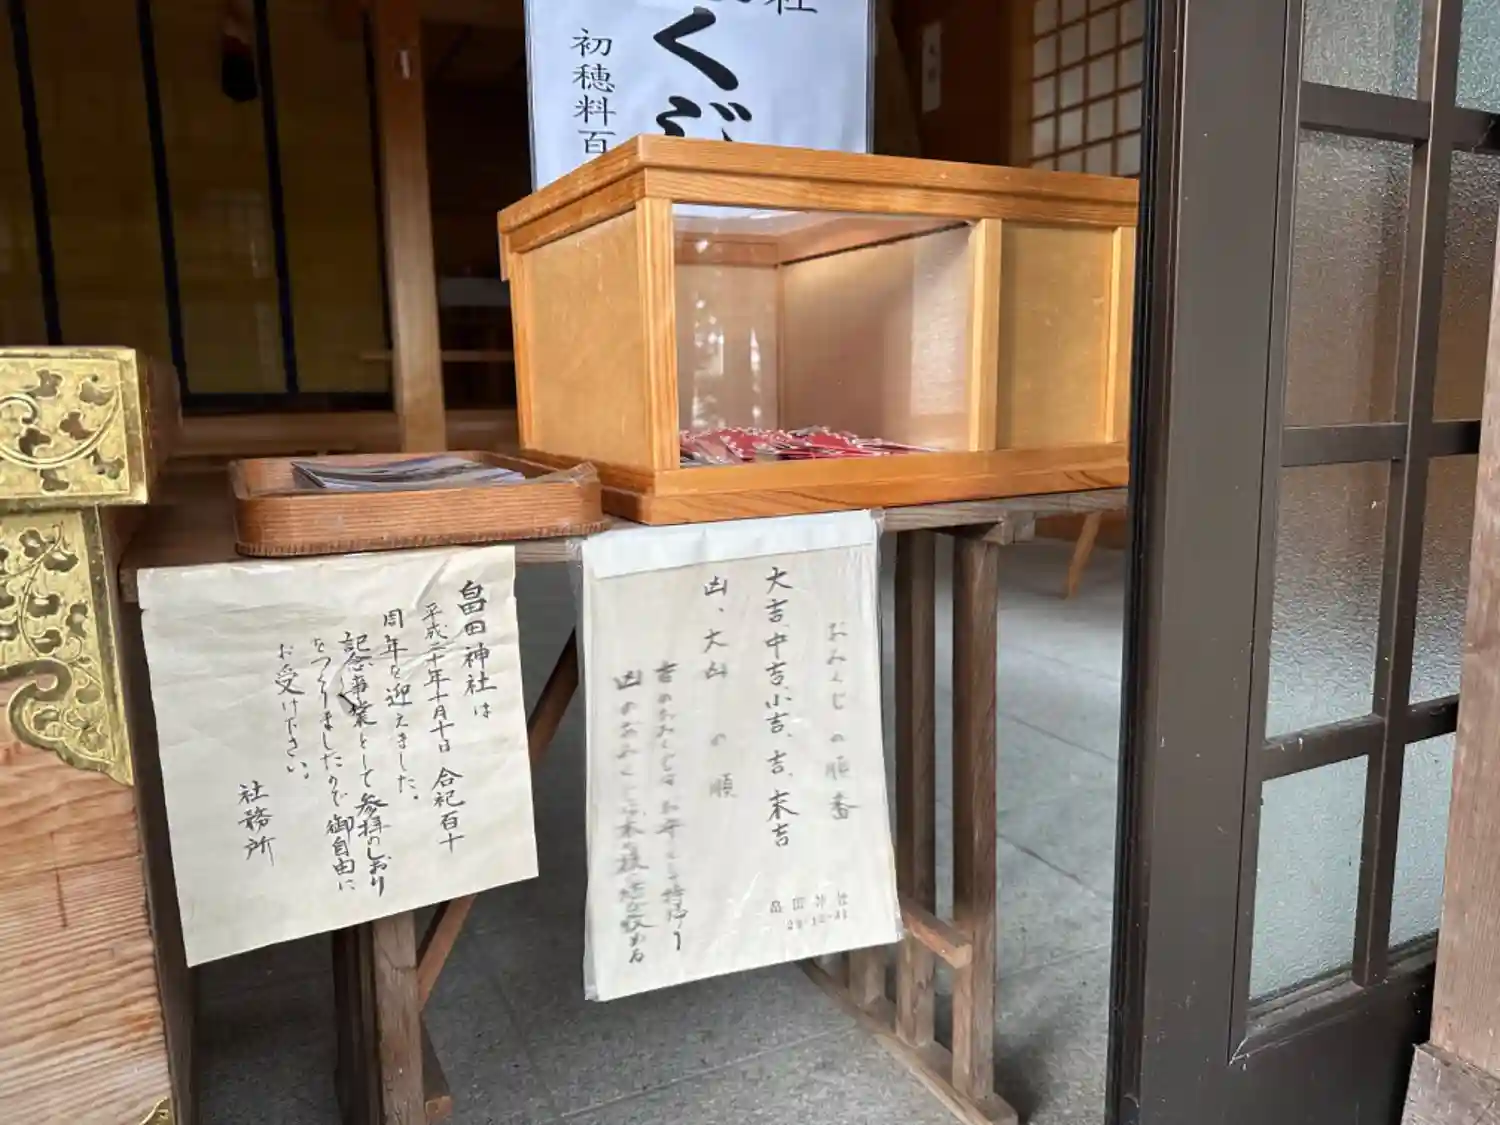 社
くじ
初穂料百
畠田神社は
平成二十年十月十日 合祀百十
周年を迎えました。
記念事業として参拝のしおり
をつくりましたので御自由に
お受け下さい。
社務所
おみくじの順番
大吉、中吉、小吉、吉、末吉
凶、大凶の順
吉のおみくじはお守として持帰り
凶のおみくじは木の枝に結び収める
畠田神社